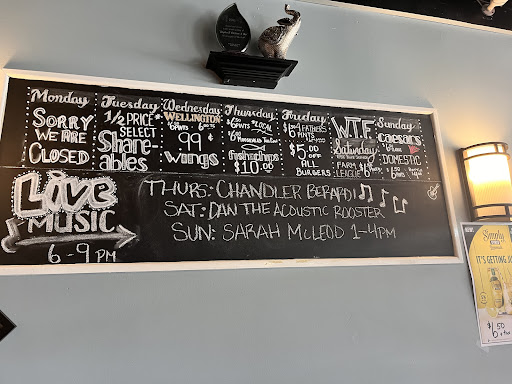 Monday
SORRY
WE ARE
CLOSED
Tuesday
1/2 PRICE
SELECT
Share-
ables
Wednesday
WELLINGTON
99¢
wings
Thursday
LOCAL
fish&chips
$10.00
Friday
FATHERS
PINTS
$5
OFF
ALL
BURGERS
W.T.F.
Saturday
FARM
LEAGUE
Sunday
CAESARS
DOMESTIC
Live
MUSIC
6-9 PM
THURS: CHANDLER BERARDI
SAT: DAN THE ACOUSTIC ROOSTER
SUN: SARAH McLEOD 1-4PM
Simply
IT'S GETTING
$6.50